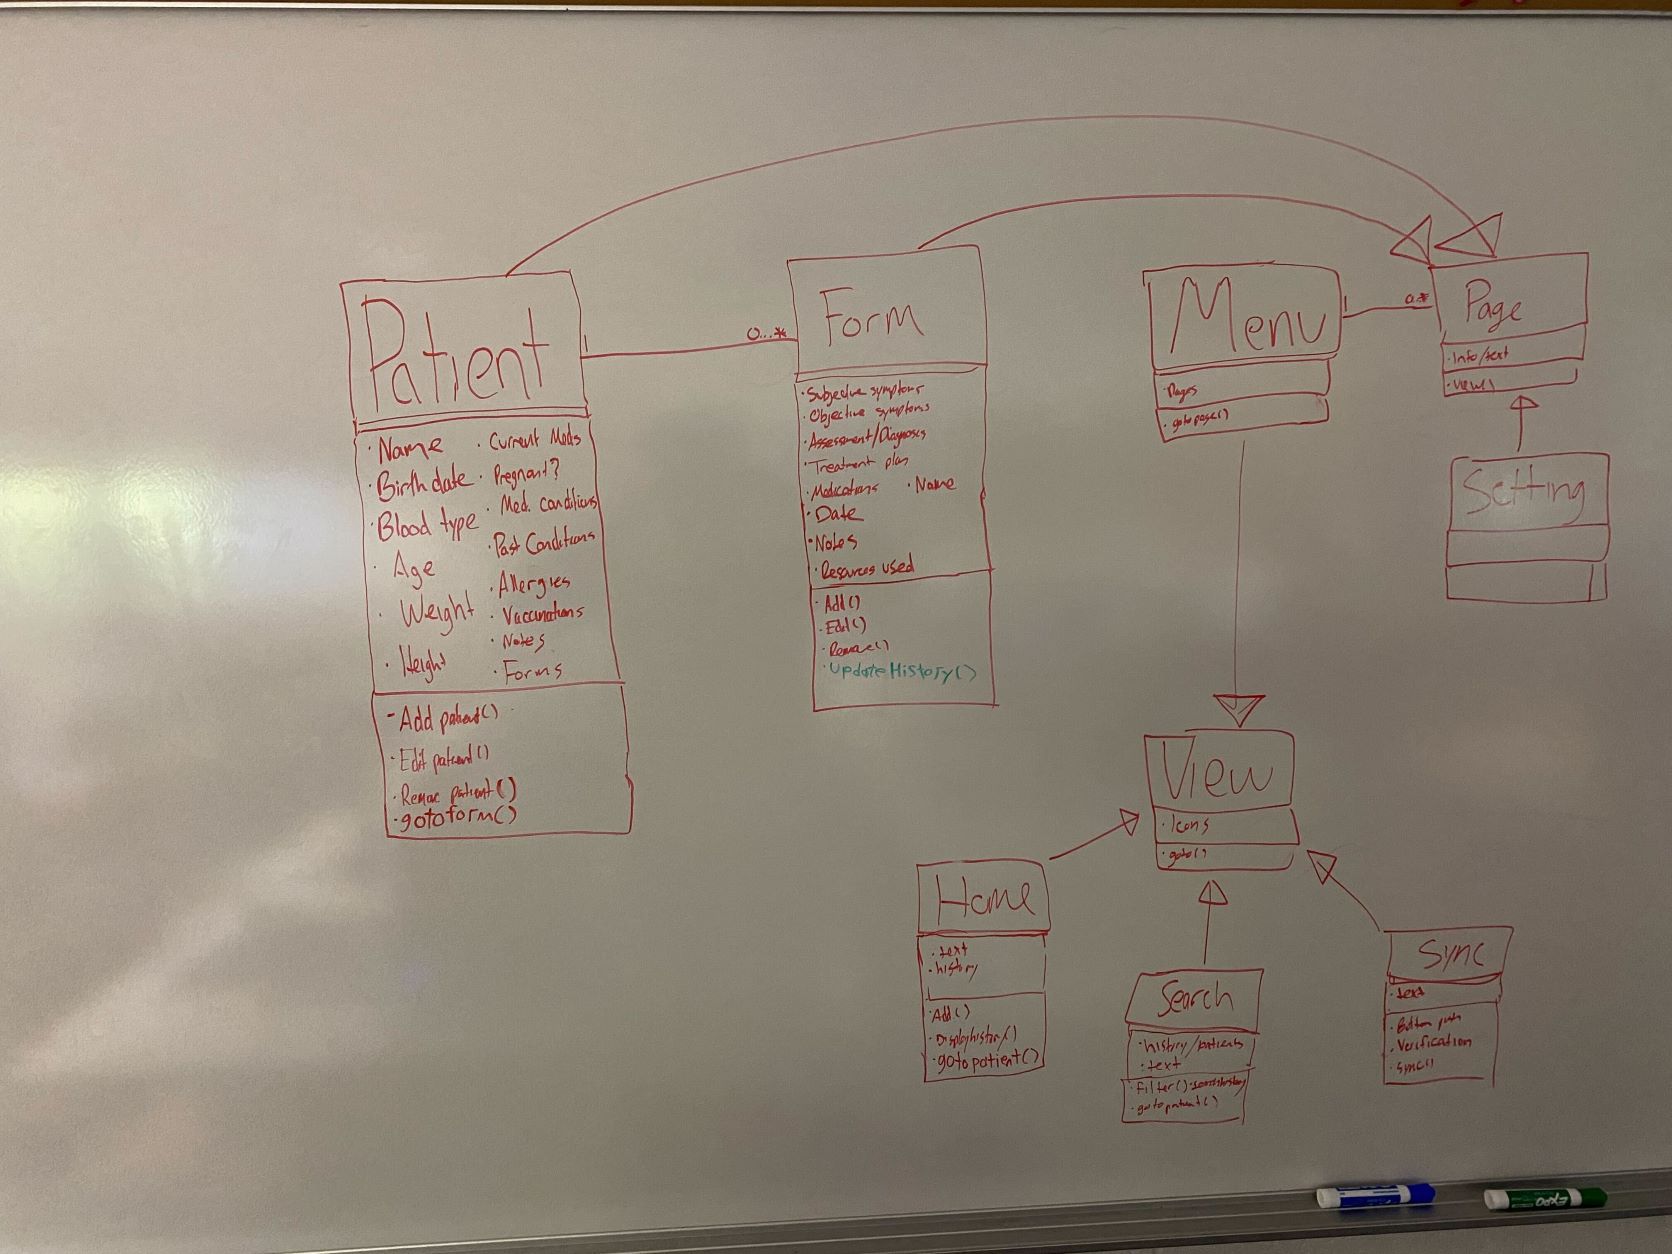 Patient
· Name
· Birthdate
· Blood type
· Age
· Weight
· Height
· Current Meds
· Pregnant?
· Med. conditions
· Past Conditions
· Allergies
· Vaccinations
· Notes
· Forms
- Add patient()
· Edit patient()
· Remove patient()
· gotoform()
1
0...*
Form
· Subjective symptoms
· Objective symptoms
· Assessment/Diagnosis
· Treatment plan
· Medications · Name
· Date
· Notes
· Resources used
· Add()
· Edit()
· Remove()
· UpdateHistory()
Menu
· Pages
· gotopage()
1
0..*
Page
· Info/text
· view()
Setting
View
· Icons
· goto()
Home
· text
· history
· Add()
· Displayhistory()
· gotopatient()
Search
· history/patients
· text
· filter()
· gotopatient()
Sync
· text
· Button push
· Verification
· sync()
EXPO